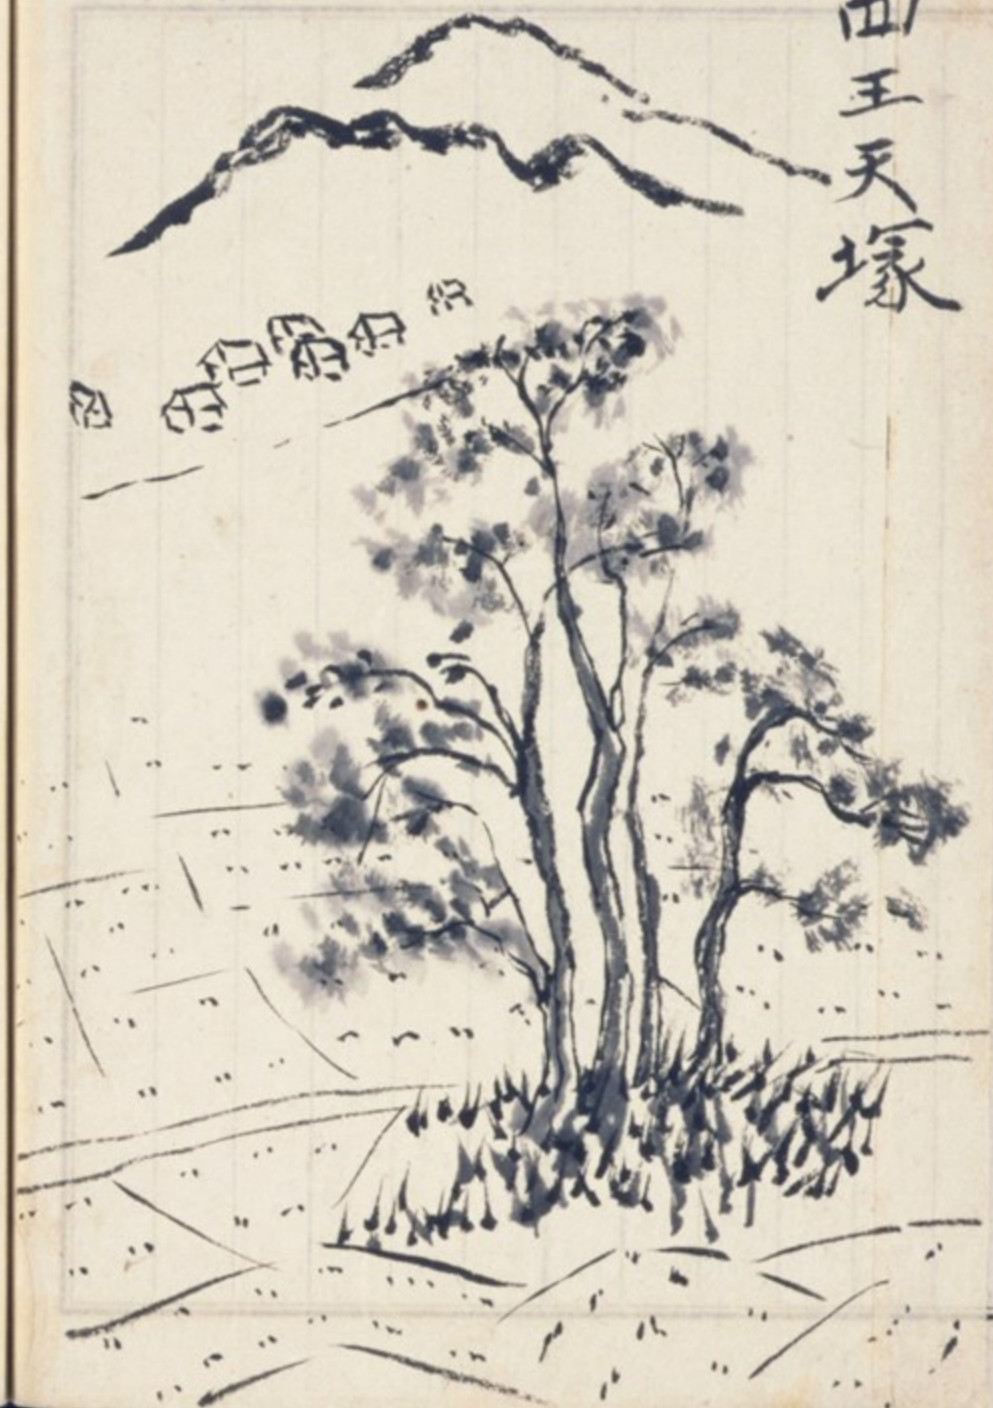 四王天塚